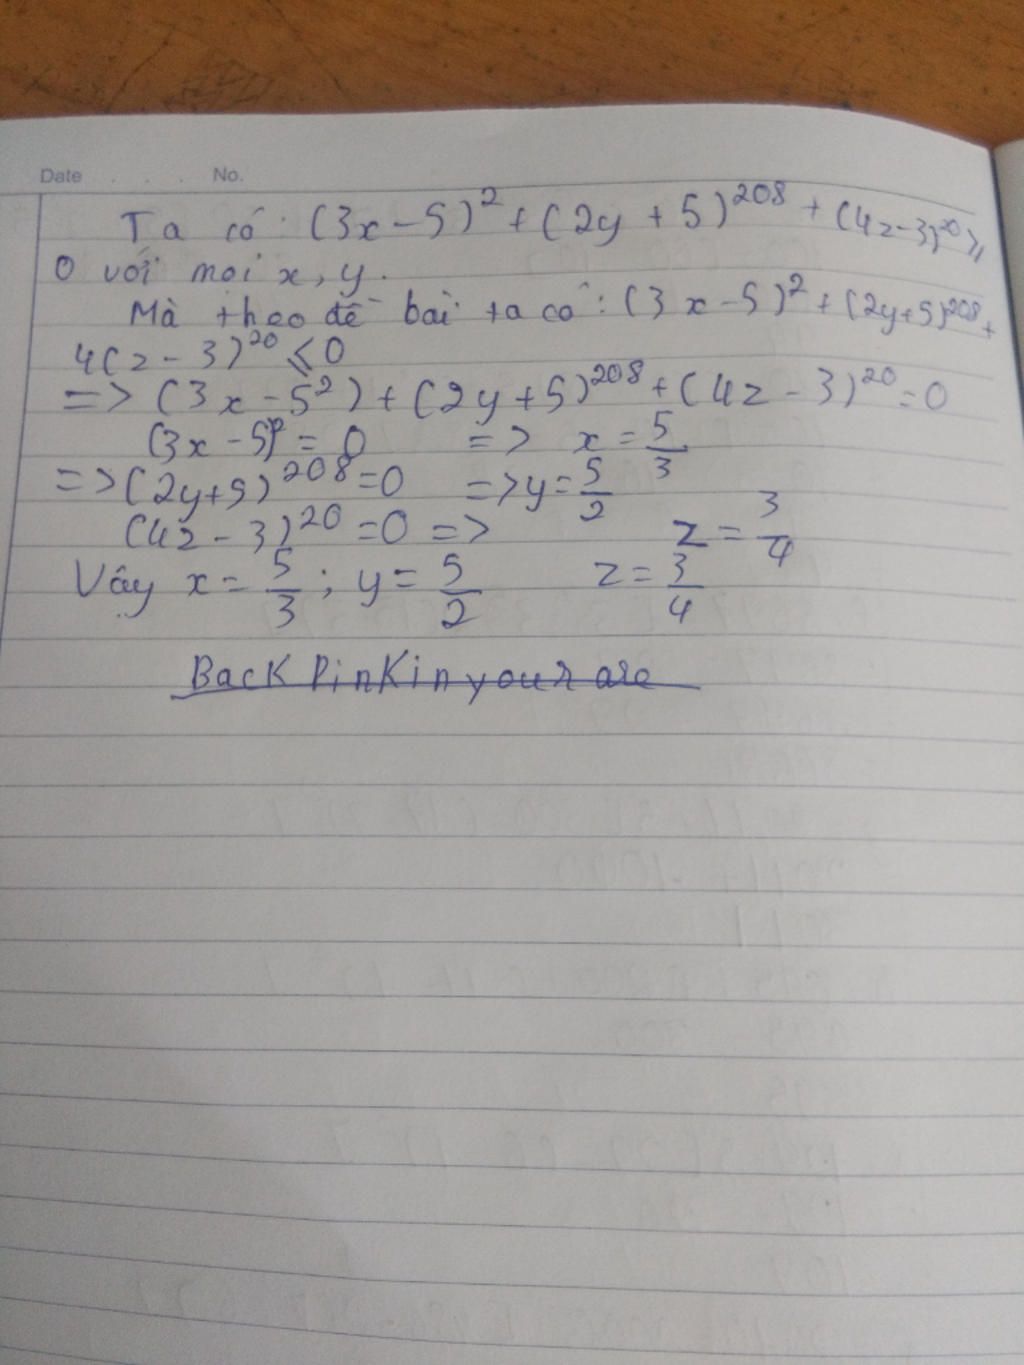 Date . . . No.
Ta có: (3x-5)² + (2y+5)²⁰⁸ + (4z-3)²⁰ ≥
0 với mọi x, y.
Mà theo đề bài ta có: (3x-5)² + (2y+5)²⁰⁸ +
4(z-3)²⁰ ≤ 0
=> (3x-5²) + (2y+5)²⁰⁸ + (4z-3)²⁰ = 0
(3x-5)² = 0 => x = 5/3
=> (2y+5)²⁰⁸ = 0 => y = 5/2
(4z-3)²⁰ = 0 => z = 3/4
Vậy x = 5/3 ; y = 5/2 z = 3/4
Back Pink in your are